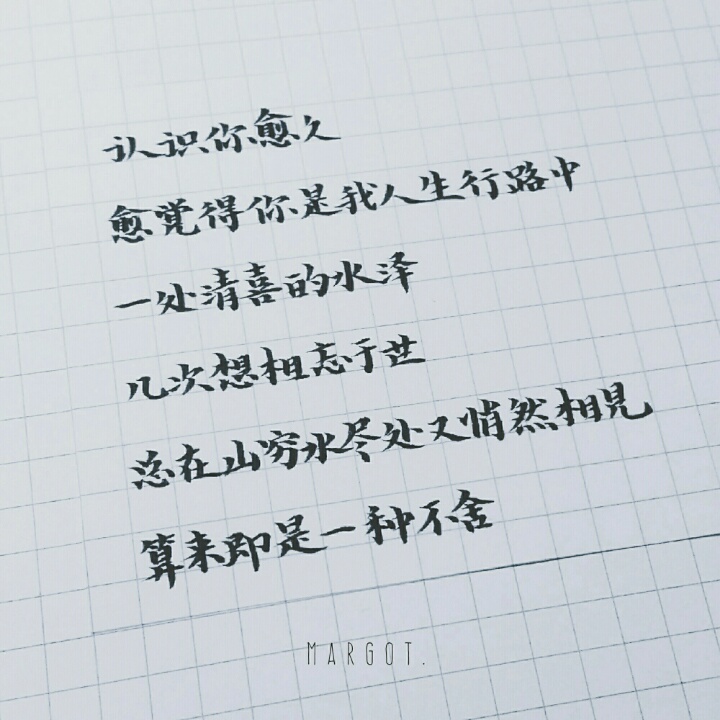 认识你愈久
愈觉得你是我人生行路中
一处清喜的水泽
几次想相忘于世
总在山穷水尽处又悄然相见
算来即是一种不舍
MARGOT.